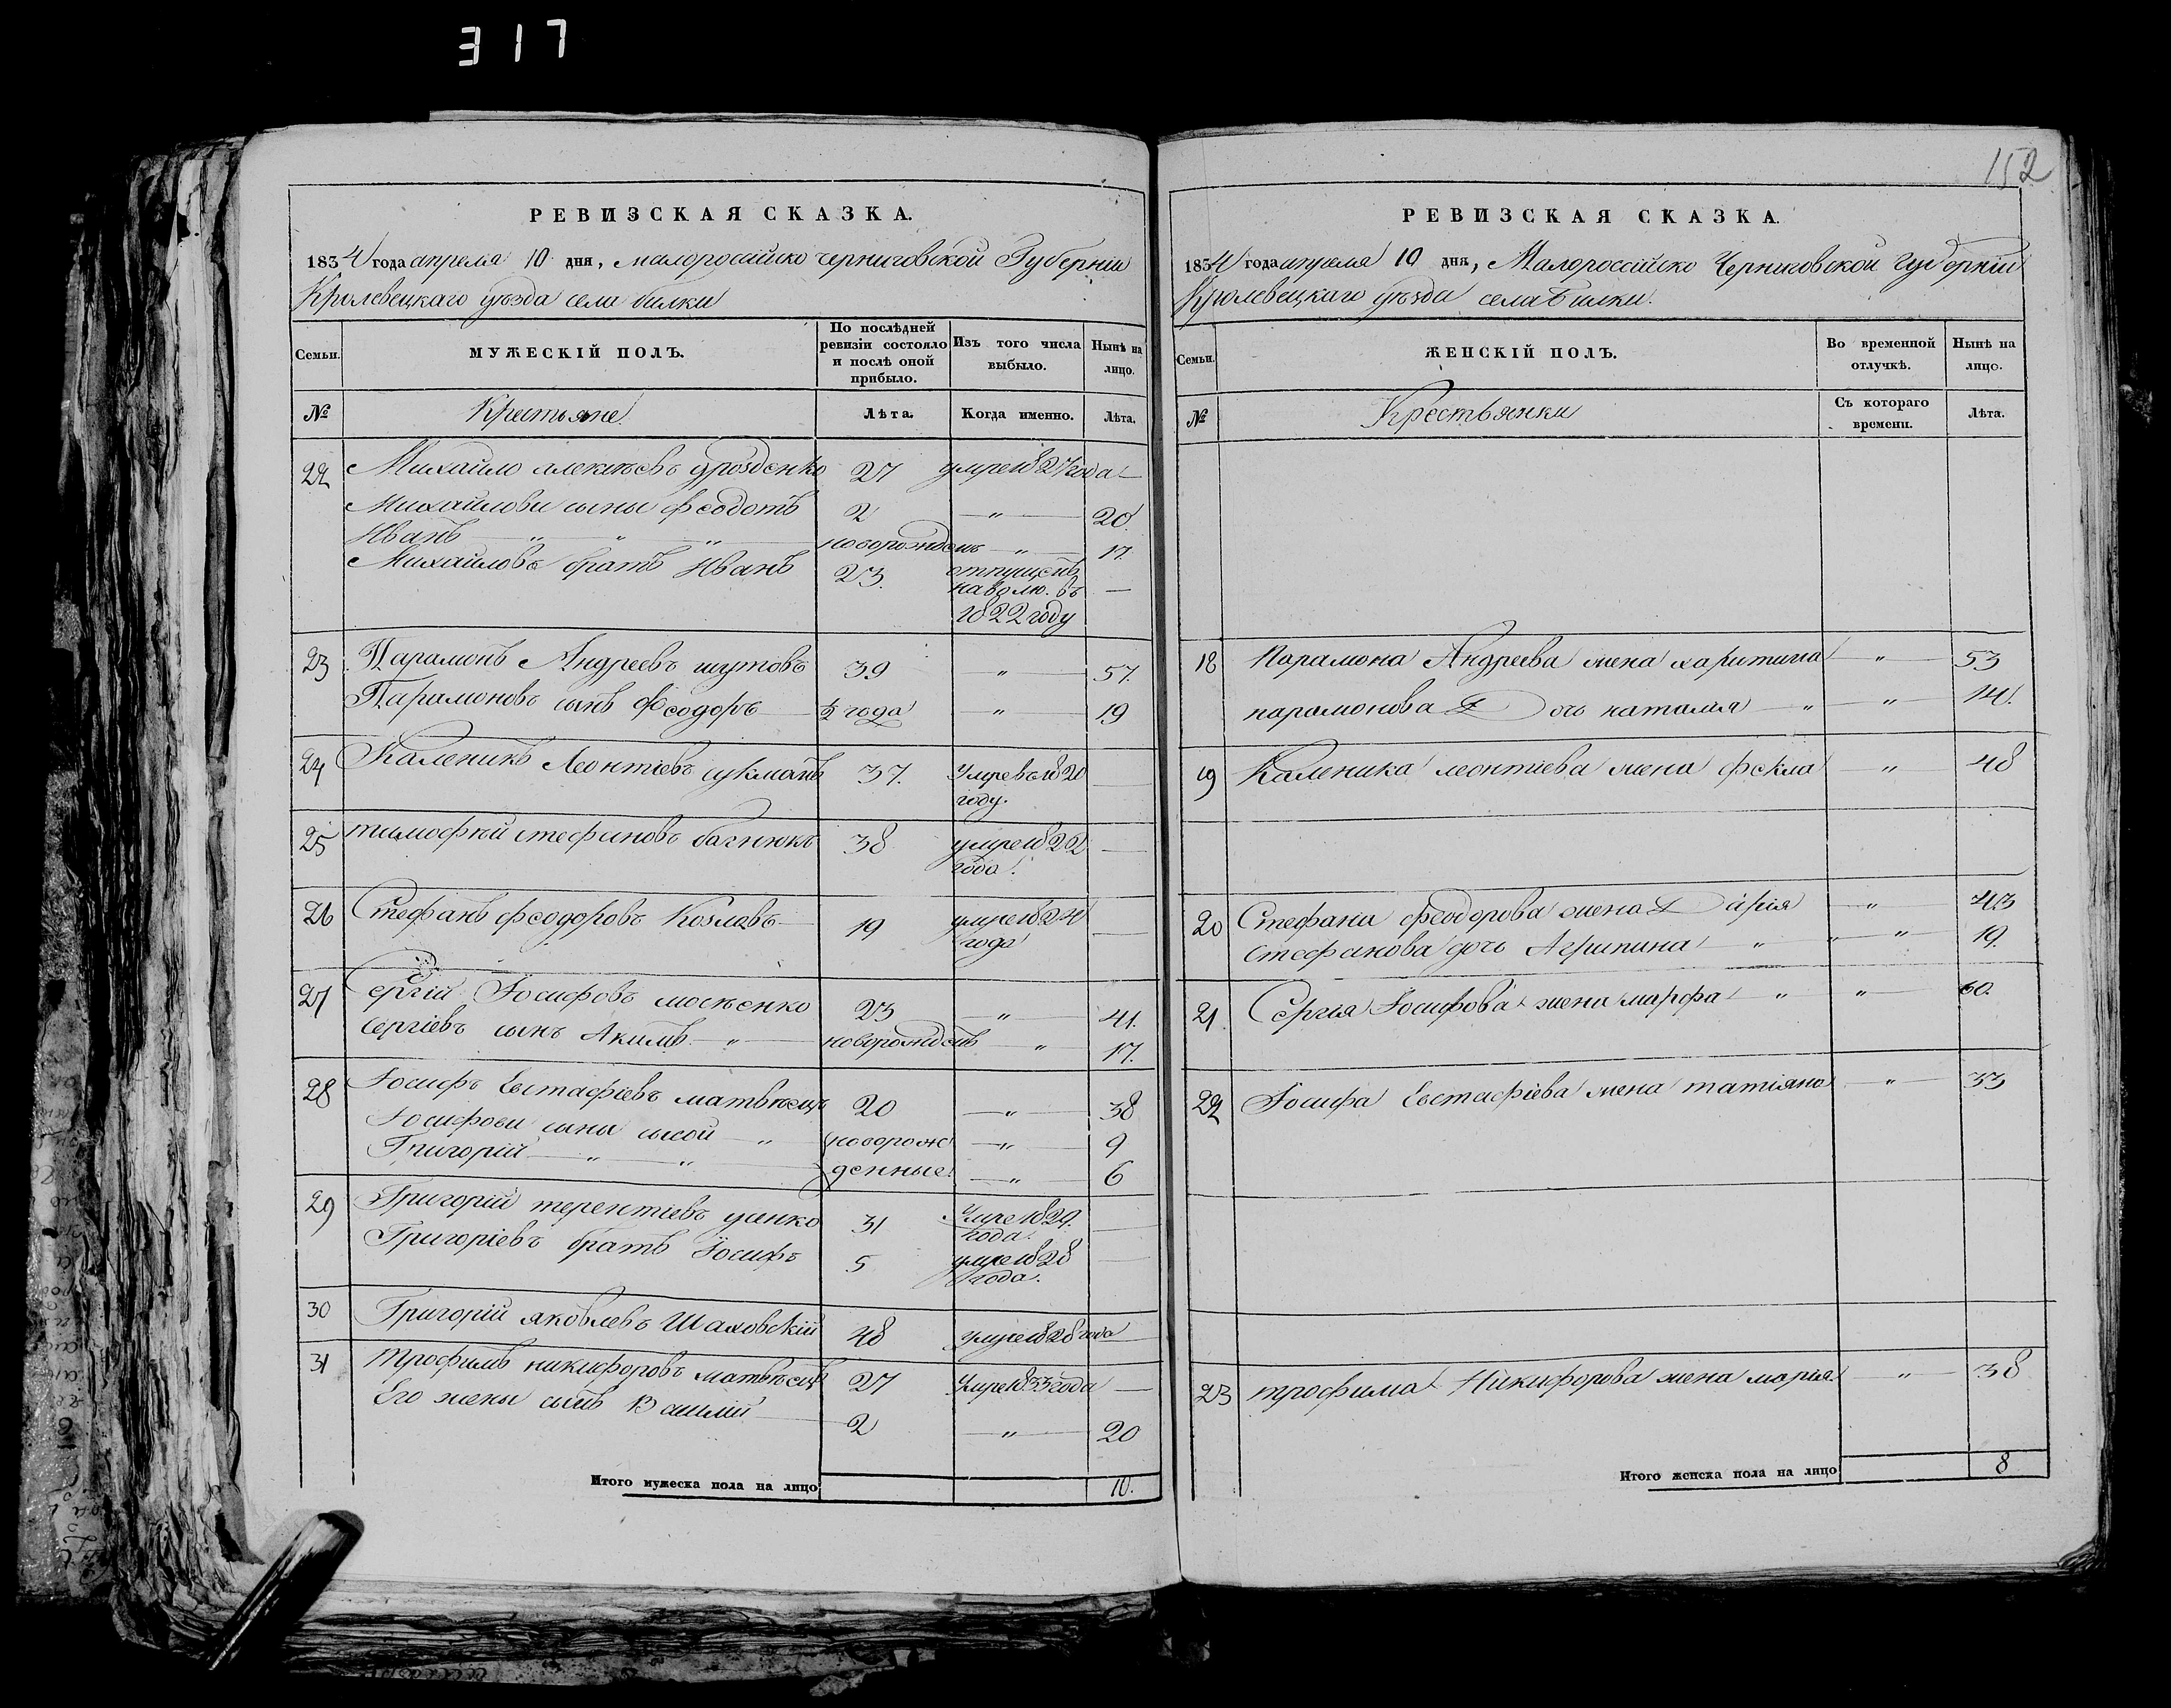 317
152
РЕВИЗСКАЯ СКАЗКА.
1834 года апреля 10 дня, малороссійско черниговской Губерніи
Кролевецкаго уезда села билки
Семьи. МУЖЕСКІЙ ПОЛЪ. По послѣдней ревизіи состояло и послѣ оной прибыло. Изъ того числа выбыло. Нынѣ на лицо.
№ Крестьяне Лѣта. Когда именно. Лѣта.
22 Михайло алексѣевъ дрозденко 27 умре 1827 года —
Михайлови сыны феодотъ 2 „ 20.
Иванъ „ „ „ новорожденъ „ 17.
Михайловъ братъ Иванъ 23. отпущенъ
на волю. въ —
1822 году
23 Парамонъ Андреевъ шутовъ 39 „ 57.
Парамоновъ сынъ Феодоръ ½ года „ 19
24 Каленикъ Леонтіевъ сукманъ 37. Умре въ 1820
году. —
25 тимофѣй стефановъ 38 умре 1822 —
года.
26 Стефанъ феодоровъ Козловъ 19 умре 1824
года —
27 Сергій Іосифовъ мосѣенко 23 „ 41.
Сергіевъ сынъ Акимъ „ новорожденъ „ 17.
28 Іосифъ Евстафіевъ матвѣецъ 20 „ 38
Іосифови сыны сысой „ новорож „ 9
Григорій „ „ денные. „ 6
29 Григорій терентіевъ уанко 31 Умре 1829.
года. —
Григоріевъ братъ Іосифъ 5 умре 1828
года. —
30 Григорій яковлевъ Шаховскій 48 умре 1828 года
31 трофимъ никифоровъ матвѣецъ 27 Умре 1833 года —
Его жены сынъ Василій 2 „ 20
Итого мужеска пола на лицо 10.
РЕВИЗСКАЯ СКАЗКА.
1834 года апреля 10 дня, Малороссійско Черниговской губерніи
Кролевецкаго уѣзда села Билки.
Семьи. ЖЕНСКІЙ ПОЛЪ. Во временной отлучкѣ. Нынѣ на лицо.
№ Крестьянки Съ котораго времени. Лѣта.
18 Парамона Андреева жена харитина „ 53
парамонова Дочь наталія „ „ 14.
19 Каленика леонтіева жена фекла „ 48
20 Стефана феодорова жена Дарія „ 43
Стефанова дочь Агрипина „ „ „ 19.
21 Сергія Іосифова жена марфа „ „ 60.
22 Іосифа Евстафіева жена татіяна „ 33
23 трофима Никифорова жена марія. „ 38
Итого женска пола на лицо 8